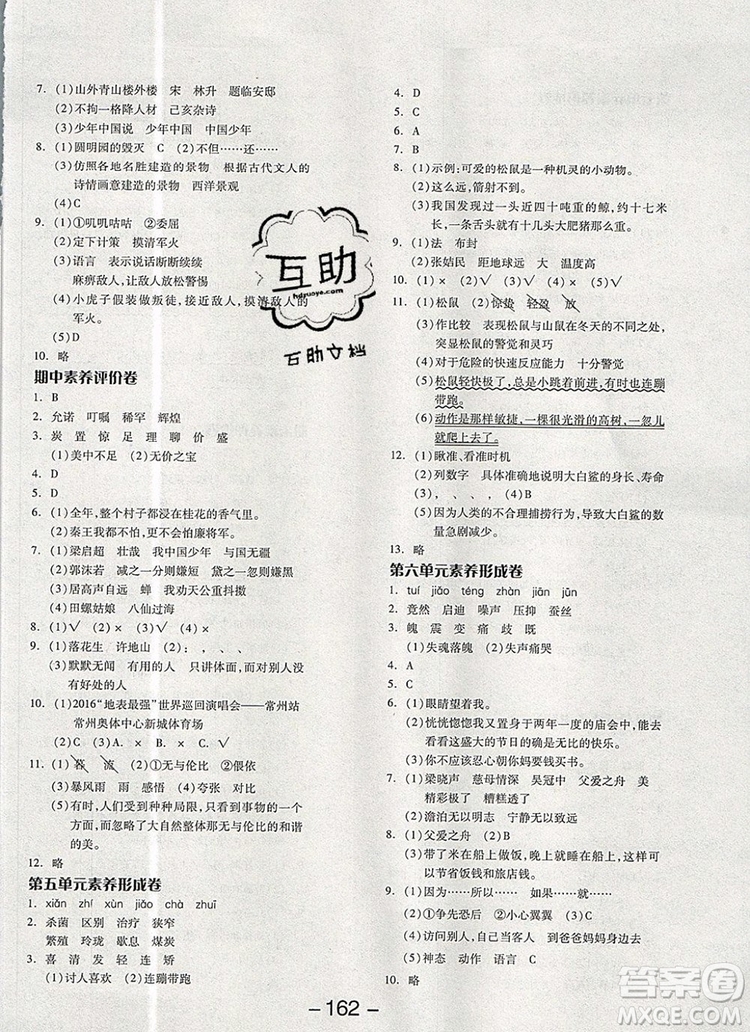 7. (1)山外青山楼外楼 宋 林升 题临安邸
(2)不拘一格降人材 己亥杂诗
(3)少年中国说 少年中国
8. (1)圆明园的毁灭 C (2)不但……还……
(3)仿照各地名胜建造的景物 根据古代文人的
诗情画意建造的景物 西洋景观
9. (1)①叽叽咕咕 ②委屈
(2)定下计策 摸清军火
(3)语言 表示说话断断续续
麻痹敌人,让敌人放松警惕
(4)小虎子假装做叛徒,接近敌人,摸清敌人的
军火。
(5)D
10. 略
期中素养评价卷
1. B
2. 允诺 叮嘱 稀罕 辉煌
3. 炭 置 惊 足 理 聊 价 盛
(1)美中不足 (2)无价之宝
4. D
5. D
6. (1)全年,整个村子都浸在桂花的香气里。
(2)秦王我都不怕,更不会怕廉将军。
7. (1)梁启超 壮哉 我中国少年 与国无疆
(2)郭沫若 减之一分则嫌短 黛之一忽则嫌黑
(3)居高声自远 蝉 我劝天公重抖擞
(4)田螺姑娘 八仙过海
8. (1)√ (2)× (3)√ (4)×
9. (1)落花生 许地山 (2):,、、。
(3)默默无闻 有用的人 只讲体面,而没有
有好处的人
10. (1)2016“地表最强”世界巡回演唱会——常州站
常州奥体中心新城体育场
(2)C (3)A (4)× × √
11. (1)暮 流 (2)①无与伦比 ②偎依
(3)暴风雨 雨 感悟 (4)夸张 对比
(5)有时,人们受到种种局限,只看到事物的一个方
面,而忽略了大自然整体那无与伦比的和谐
的美。
12. 略
第五单元素养形成卷
1. xiǎn zhí xùn jiǎo chà zhuī
2. 杀菌 区别 治疗 狭窄
繁殖 玲珑 歇息 煤炭
3. 喜 清 发 轻 连 矫
(1)讨人喜欢 (2)连蹦带跑
4. D
5. C
6. A
7. C
8. (1)示例:可爱的松鼠是一种机灵的小动物。
(2)这么远,箭射不到。
(3)我国发现过一头近四十吨重的鲸,约十七米
长,一条舌头就有十几头大肥猪那么重。
9. (1)法 布封
(2)张姞民 距地球远 大 温度高
10. (1)× (2)√ (3)× (4)× (5)√
11. (1)松鼠 (2)惊蛰 轻盈 放
(3)作比较 表现松鼠与山鼠在冬天的不同之处,
突显松鼠的警觉和灵巧
(4)对于危险的快速反应能力 十分警觉
(5)松鼠轻快极了,总是小跳着前进,有时也连蹦
带跑。
(6)动作是那样敏捷,一棵很光滑的高树,一忽儿
就爬上去了。
12. (1)瞅准、看准时机
(2)列数字 具体准确地说明大白鲨的身长、寿命
(3)、、,、 (4)B
(5)因为人类的不合理捕捞行为,导致大白鲨的数
量急剧减少。
13. 略
第六单元素养形成卷
1. tuí jiǎo téng zhàn jiān jūn
2. 竟然 启迪 噪声 压抑 蚕丝
3. 魄 震 变 痛 歧 既
(1)失魂落魄 (2)失声痛哭
4. A
5. C
6. (1)眼睛望着我。
(2)恍恍惚惚我又置身于两年一度的庙会中,我
看看这盛大的节日的确无比的快乐。
(3)你不应该忍心让妈妈给钱买书。
7. (1)梁晓声 慈母情深 吴冠中 父爱之舟 美
精彩极了 糟糕透了
(2)澹泊无以明志 宁静无以致远
8. (1)父爱之舟 (2)B
(3)带了米在船上做饭,晚上就睡在船上,这样可
以节省饭钱和旅店钱。
9. (1)因为……所以…… 如果……就……
(2)①争先恐后 ②小心翼翼 (3)C
(4)访问别人,自己当客人 到爸爸妈妈房间去
(5)神态 动作 语言 (6)C
10. 略
互助
hdzuoye.com
互助文档
- 162 -
答案圈
MXQE.COM